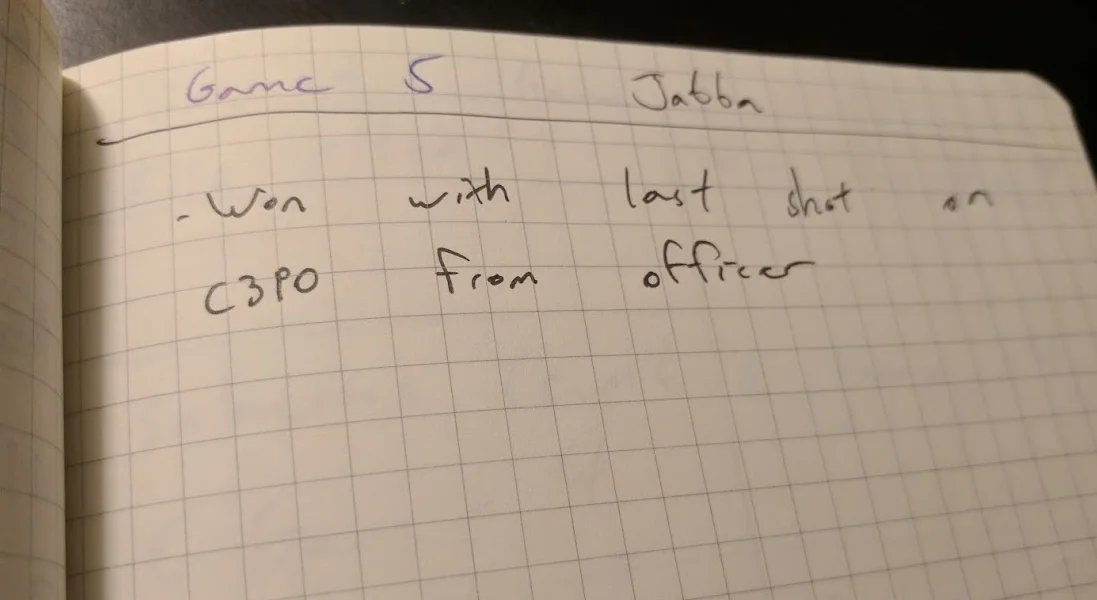 Game 5 Jabba
- Won with last shot on
C3PO from officer